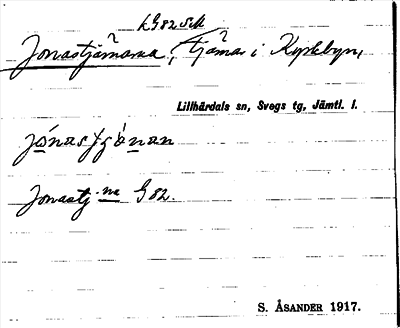 LG 82 SM
Jonastjärnarna, tjärnar i Kyrkbyn,
Lillhärdals sn, Svegs tg, Jämtl. l.
Jonastj. na G 82.
S. ÅSANDER 1917.